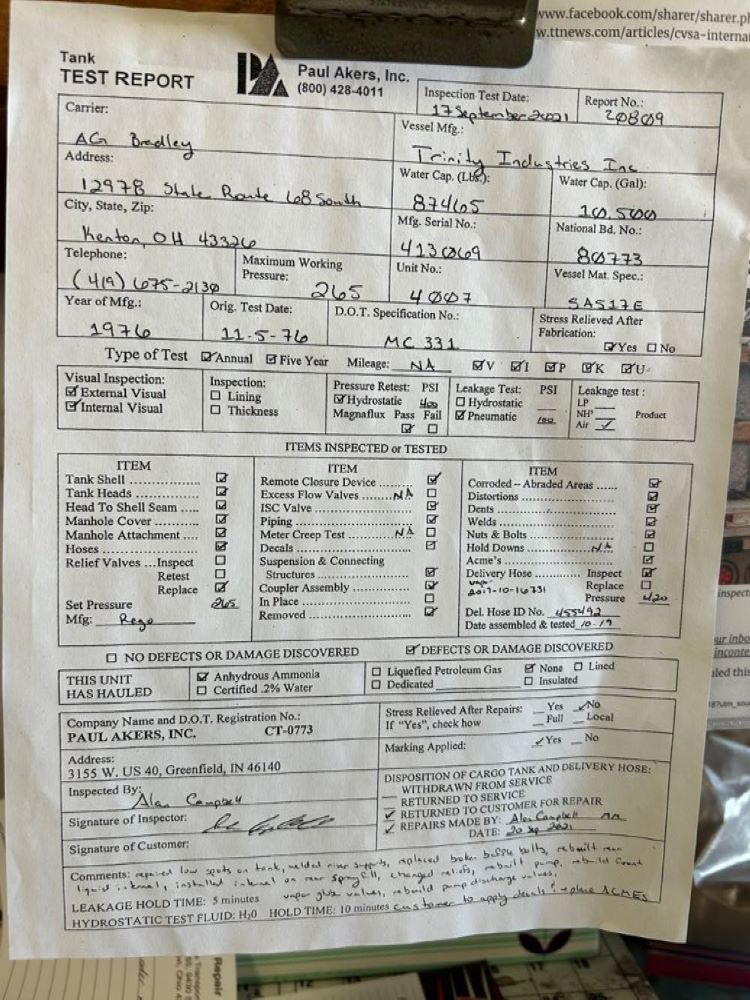 www.facebook.com/sharer/sharer.p
w.ttnews.com/articles/cvsa-interna
Tank
TEST REPORT
Paul Akers, Inc.
(800) 428-4011
Inspection Test Date:
17 September 2021
Report No.:
20809
Carrier:
AG Bradley
Vessel Mfg.:
Trinity Industries Inc
Address:
12978 State Route 68 South
Water Cap. (Lbs.):
87465
Water Cap. (Gal):
10,500
City, State, Zip:
Kenton, OH 43326
Mfg. Serial No.:
413069
National Bd. No.:
80773
Telephone:
(419) 675-2130
Maximum Working
Pressure:
265
Unit No.:
4007
Vessel Mat. Spec.:
SA517E
Year of Mfg.:
1976
Orig. Test Date:
11-5-76
D.O.T. Specification No.:
MC 331
Stress Relieved After
Fabrication:
☑Yes ☐No
Type of Test ☑Annual ☑Five Year Mileage: NA ☑V ☑I ☑P ☑K ☑U
Visual Inspection:
☑ External Visual
☑ Internal Visual
Inspection:
☐ Lining
☐ Thickness
Pressure Retest: PSI
☑Hydrostatic 400
Magnaflux Pass Fail
☑ ☐
Leakage Test: PSI
☐ Hydrostatic
☑ Pneumatic
Leakage test :
LP
NH³ Product
Air ✓
ITEMS INSPECTED or TESTED
ITEM
Tank Shell ☑
Tank Heads ☑
Head To Shell Seam ☑
Manhole Cover ☑
Manhole Attachment ☑
Hoses ☑
Relief Valves ...Inspect ☐
Retest ☐
Replace ☑
Set Pressure 265
Mfg: Rego
ITEM
Remote Closure Device ☑
Excess Flow Valves NA ☐
ISC Valve ☑
Piping ☑
Meter Creep Test NA ☐
Decals ☑
Suspension & Connecting
Structures ☑
Coupler Assembly ☑
In Place ☐
Removed ☑
ITEM
Corroded – Abraded Areas ☑
Distortions ☑
Dents ☑
Welds ☑
Nuts & Bolts ☑
Hold Downs NA ☐
Acme's ☑
Delivery Hose Inspect ☑
Replace ☐
2017-10-16731
Pressure 420
Del. Hose ID No. 455492
Date assembled & tested 10-17
☐ NO DEFECTS OR DAMAGE DISCOVERED ☑ DEFECTS OR DAMAGE DISCOVERED
THIS UNIT
HAS HAULED
☑ Anhydrous Ammonia
☐ Certified .2% Water
☐ Liquefied Petroleum Gas
☐ Dedicated
☑ None ☐ Lined
☐ Insulated
Company Name and D.O.T. Registration No.:
PAUL AKERS, INC. CT-0773
Stress Relieved After Repairs: Yes ✓No
If "Yes", check how Full Local
Marking Applied: ✓Yes No
Address:
3155 W. US 40, Greenfield, IN 46140
Inspected By:
Alan Campbell
Signature of Inspector:
Signature of Customer:
DISPOSITION OF CARGO TANK AND DELIVERY HOSE:
WITHDRAWN FROM SERVICE
RETURNED TO SERVICE
✓ RETURNED TO CUSTOMER FOR REPAIR
✓ REPAIRS MADE BY: Alan Campbell
DATE: 20 Sep 2021
Comments: repaired low spots on tank, welded riser supports, replaced broken baffle bolts, rebuilt rear
liquid internal, installed internal on rear sprayfill, changed reliefs, rebuilt pump, rebuild front
vapor globe valves, rebuild pump discharge valves,
LEAKAGE HOLD TIME: 5 minutes
HYDROSTATIC TEST FLUID: H₂0 HOLD TIME: 10 minutes customer to apply decals & replace ACMEs
Repair